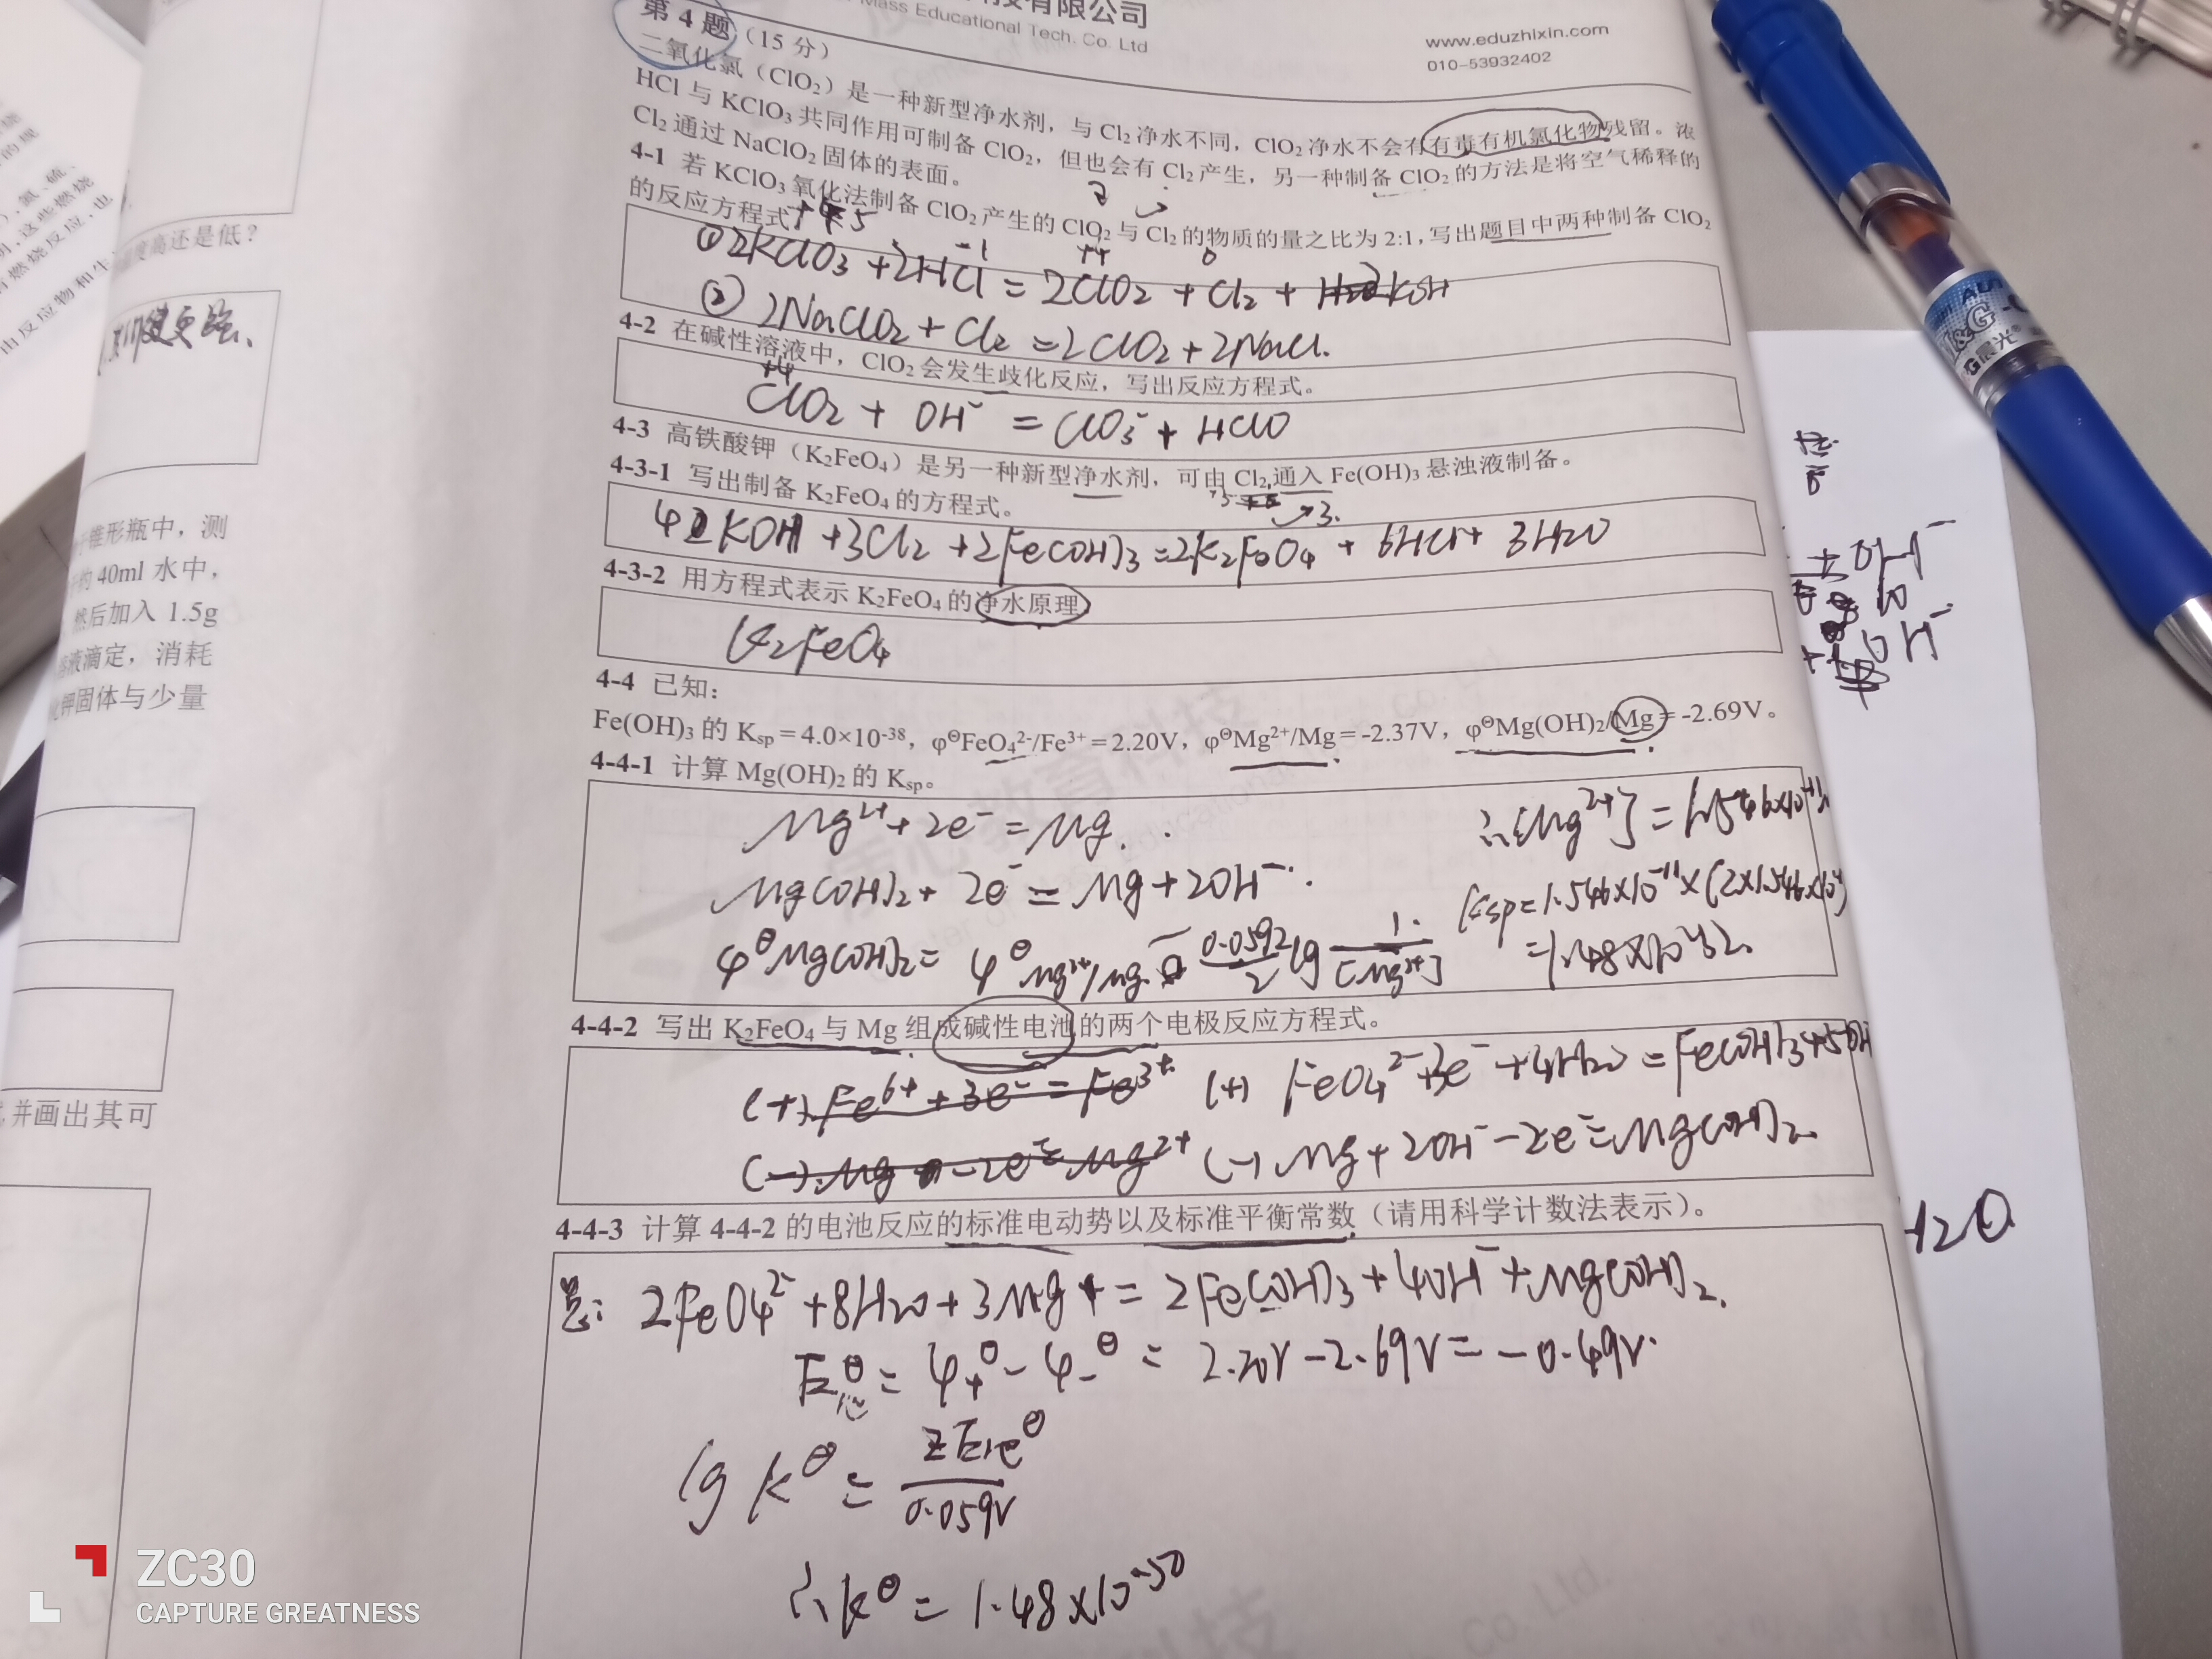 技有限公司
Mass Educational Tech. Co. Ltd
www.eduzhixin.com
010-53932402
第 4 题（15 分）
二氧化氯（ClO₂）是一种新型净水剂，与 Cl₂ 净水不同，ClO₂ 净水不会有有毒有机氯化物残留。浓
HCl 与 KClO₃ 共同作用可制备 ClO₂，但也会有 Cl₂ 产生，另一种制备 ClO₂ 的方法是将空气稀释的
Cl₂ 通过 NaClO₂ 固体的表面。
4-1 若 KClO₃ 氧化法制备 ClO₂ 产生的 ClO₂ 与 Cl₂ 的物质的量之比为 2:1，写出题目中两种制备 ClO₂
的反应方程式
+5 -1 +4 0
① 2KClO₃ + 2HCl = 2ClO₂ + Cl₂ + KOH
② 2NaClO₂ + Cl₂ = 2ClO₂ + 2NaCl.
4-2 在碱性溶液中，ClO₂ 会发生歧化反应，写出反应方程式。
+4
ClO₂ + OH⁻ = ClO₃⁻ + HClO
4-3 高铁酸钾（K₂FeO₄）是另一种新型净水剂，可由 Cl₂ 通入 Fe(OH)₃ 悬浊液制备。
4-3-1 写出制备 K₂FeO₄ 的方程式。
4KOH + 3Cl₂ + 2Fe(OH)₃ = 2K₂FeO₄ + 6HCl + 3H₂O
4-3-2 用方程式表示 K₂FeO₄ 的净水原理
K₂FeO₄
4-4 已知：
Fe(OH)₃ 的 Ksp = 4.0×10⁻³⁸，φ^ΘFeO₄²⁻/Fe³⁺ = 2.20V，φ^ΘMg²⁺/Mg = -2.37V，φ^ΘMg(OH)₂/Mg = -2.69V。
4-4-1 计算 Mg(OH)₂ 的 Ksp。
Mg²⁺ + 2e⁻ = Mg.
Mg(OH)₂ + 2e⁻ = Mg + 2OH⁻.
φ^Θ Mg(OH)₂ = φ^Θ Mg²⁺/Mg - 0.0592/2 lg 1/[Mg²⁺]
∴[Mg²⁺] = 1.546×10⁻¹¹
Ksp = 1.546×10⁻¹¹×(2×1.546×10
= 1.48×10⁻³².
4-4-2 写出 K₂FeO₄ 与 Mg 组成碱性电池的两个电极反应方程式。
(+) Fe⁶⁺ + 3e⁻ = Fe³⁺ (+) FeO₄²⁻ + 3e⁻ + 4H₂O = Fe(OH)₃ + 5OH
(-) Mg - 2e⁻ = Mg²⁺ (-) Mg + 2OH⁻ - 2e⁻ = Mg(OH)₂.
4-4-3 计算 4-4-2 的电池反应的标准电动势以及标准平衡常数（请用科学计数法表示）。
总: 2FeO₄²⁻ + 8H₂O + 3Mg = 2Fe(OH)₃ + 4OH⁻ + Mg(OH)₂.
E^Θ池 = φ₊^Θ - φ₋^Θ = 2.20V - 2.69V = -0.49V.
lg K^Θ = zE池^Θ / 0.059V
∴K^Θ = 1.48×10⁻⁵⁰
度高还是低？
键更强、
锥形瓶中，测
约 40ml 水中，
然后加入 1.5g
溶液滴定，消耗
钾固体与少量
，并画出其可
+ OH⁻
OH⁻
H₂O
M&G
晨光
ZC30
CAPTURE GREATNESS